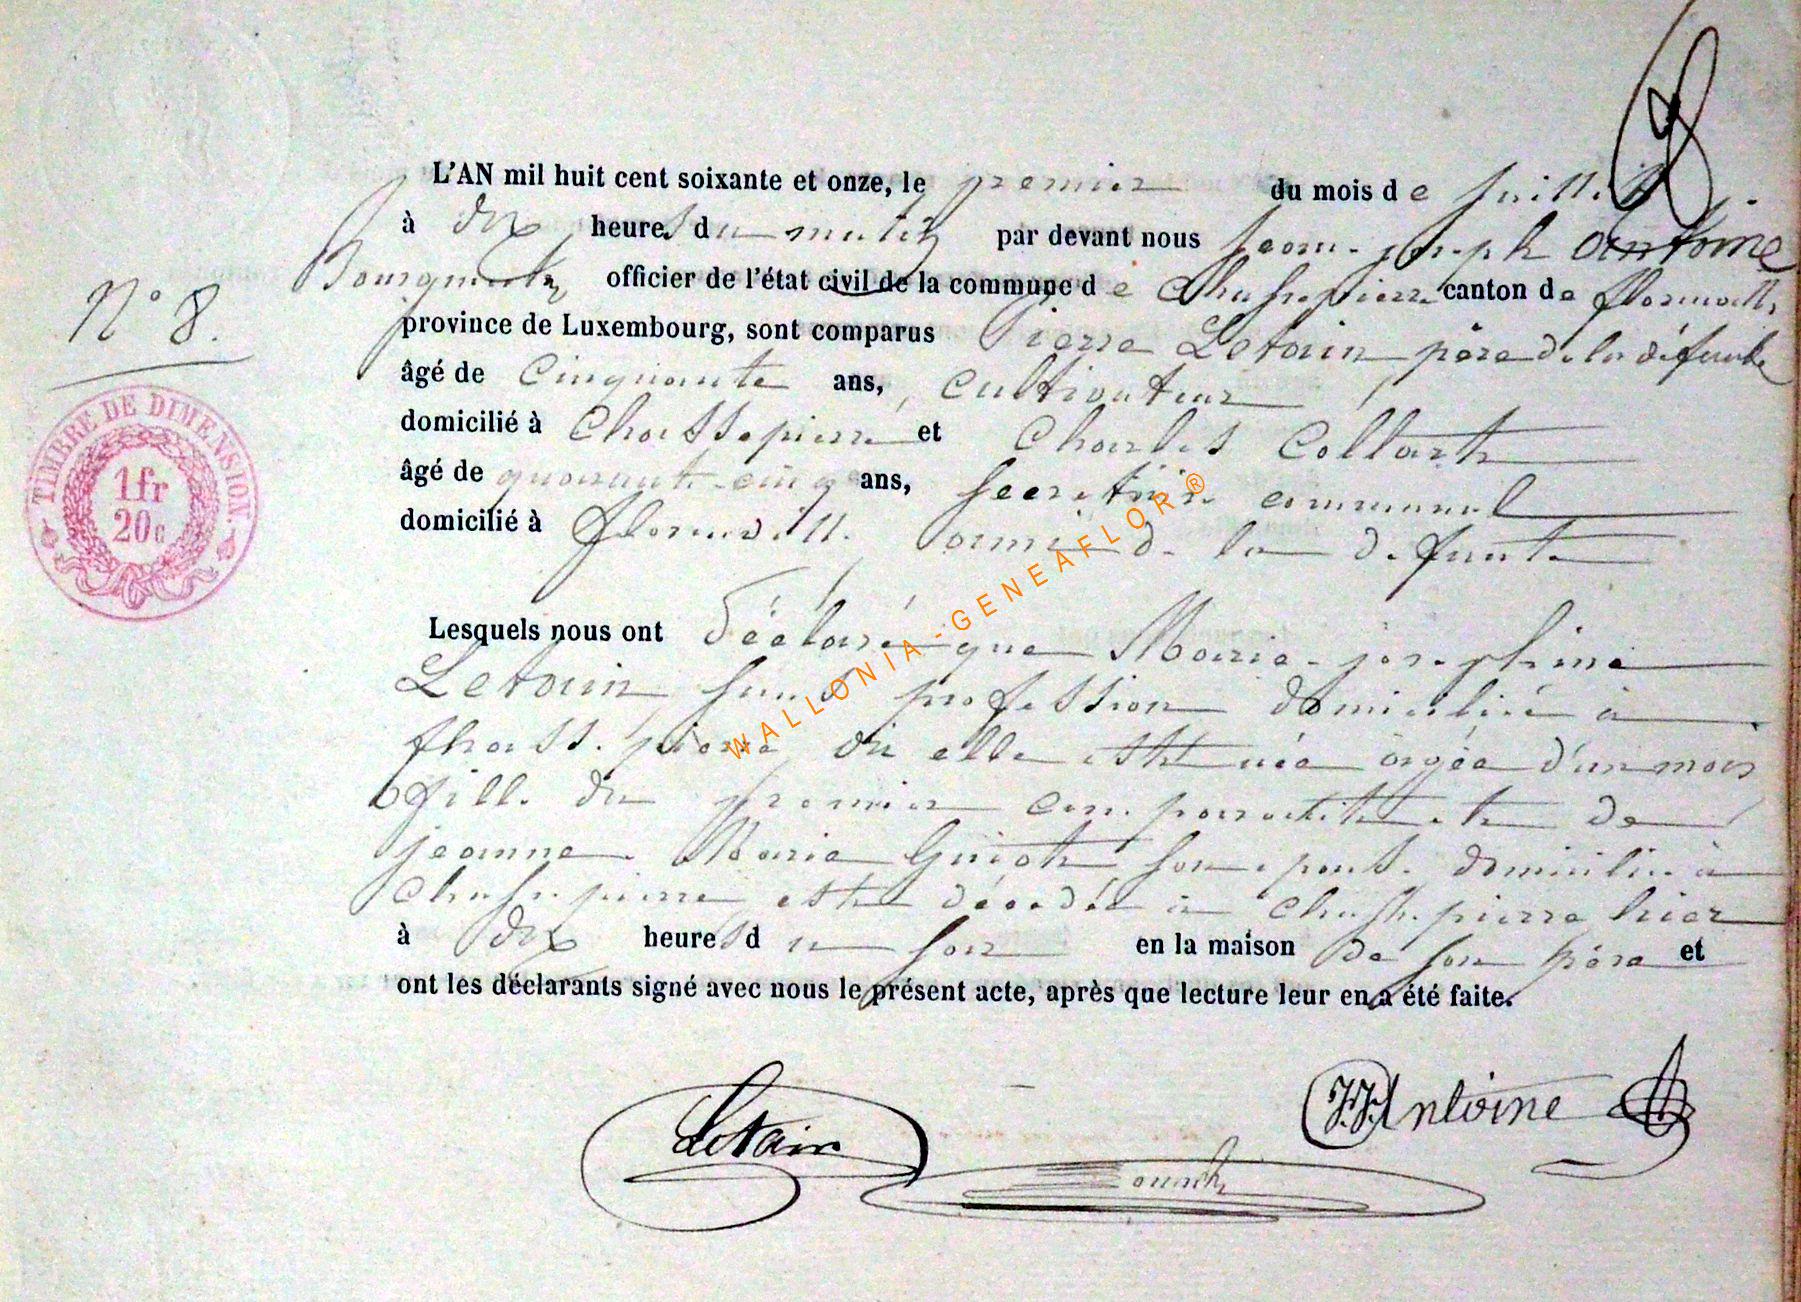 L'AN mil huit cent soixante et onze, le premier du mois de juillet
à dix heures du matin par devant nous jean-joseph antoine
Bourgmestre officier de l'état civil de la commune de Chassepierre canton de florenville
province de Luxembourg, sont comparus Pierre Letain père de la défunte
âgé de Cinquante ans, Cultivateur
domicilié à Chassepierre et Charles Collart
âgé de quarante-cinq ans, Secrétaire communal
domicilié à florenville ami de la défunte
N° 8.
TIMBRE DE DIMENSION.
1fr
20c
Lesquels nous ont déclaré que Marie-joséphine
Letain sans profession domiciliée à
Chassepierre où elle est née âgée d'un mois
fille du premier comparutit et de
jeanne Marie Guiot son épouse domicilié à
Chassepierre est décédée à Chassepierre hier
à dix heures du soir en la maison de son père et
ont les déclarants signé avec nous le présent acte, après que lecture leur en a été faite.
J.J. Antoine
Letain
WALLONIA-GENEAFLOR®